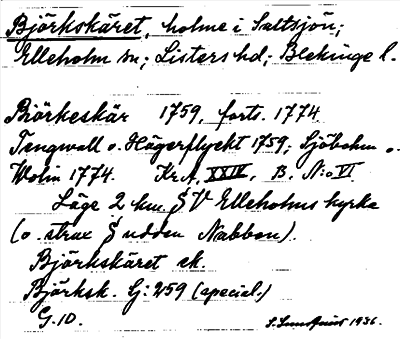 Björkskäret, holme i Saltsjön;
Elleholm sn; Listers hd; Blekinge l.
Biörkeskär 1759, forts. 1774
Tengwall o. Hägerflyckt 1759; Sjöbohm o.
Wolin 1774. Kr.A. XXIV, B. N:o VI
Läge 2 km. S V Elleholms kyrka
(o. strax S udden Nabben).
Björkskäret ek.
Björksk. Gj: 259 (special.)
G.10. 1936.